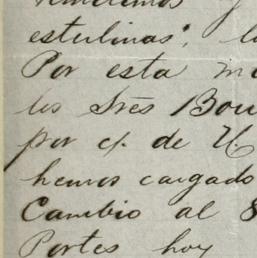 y
esterlinas", l
Por esta m
los Sres Bou
por c/. de U.
hemos cargado
Cambio al 8
Portes hoy